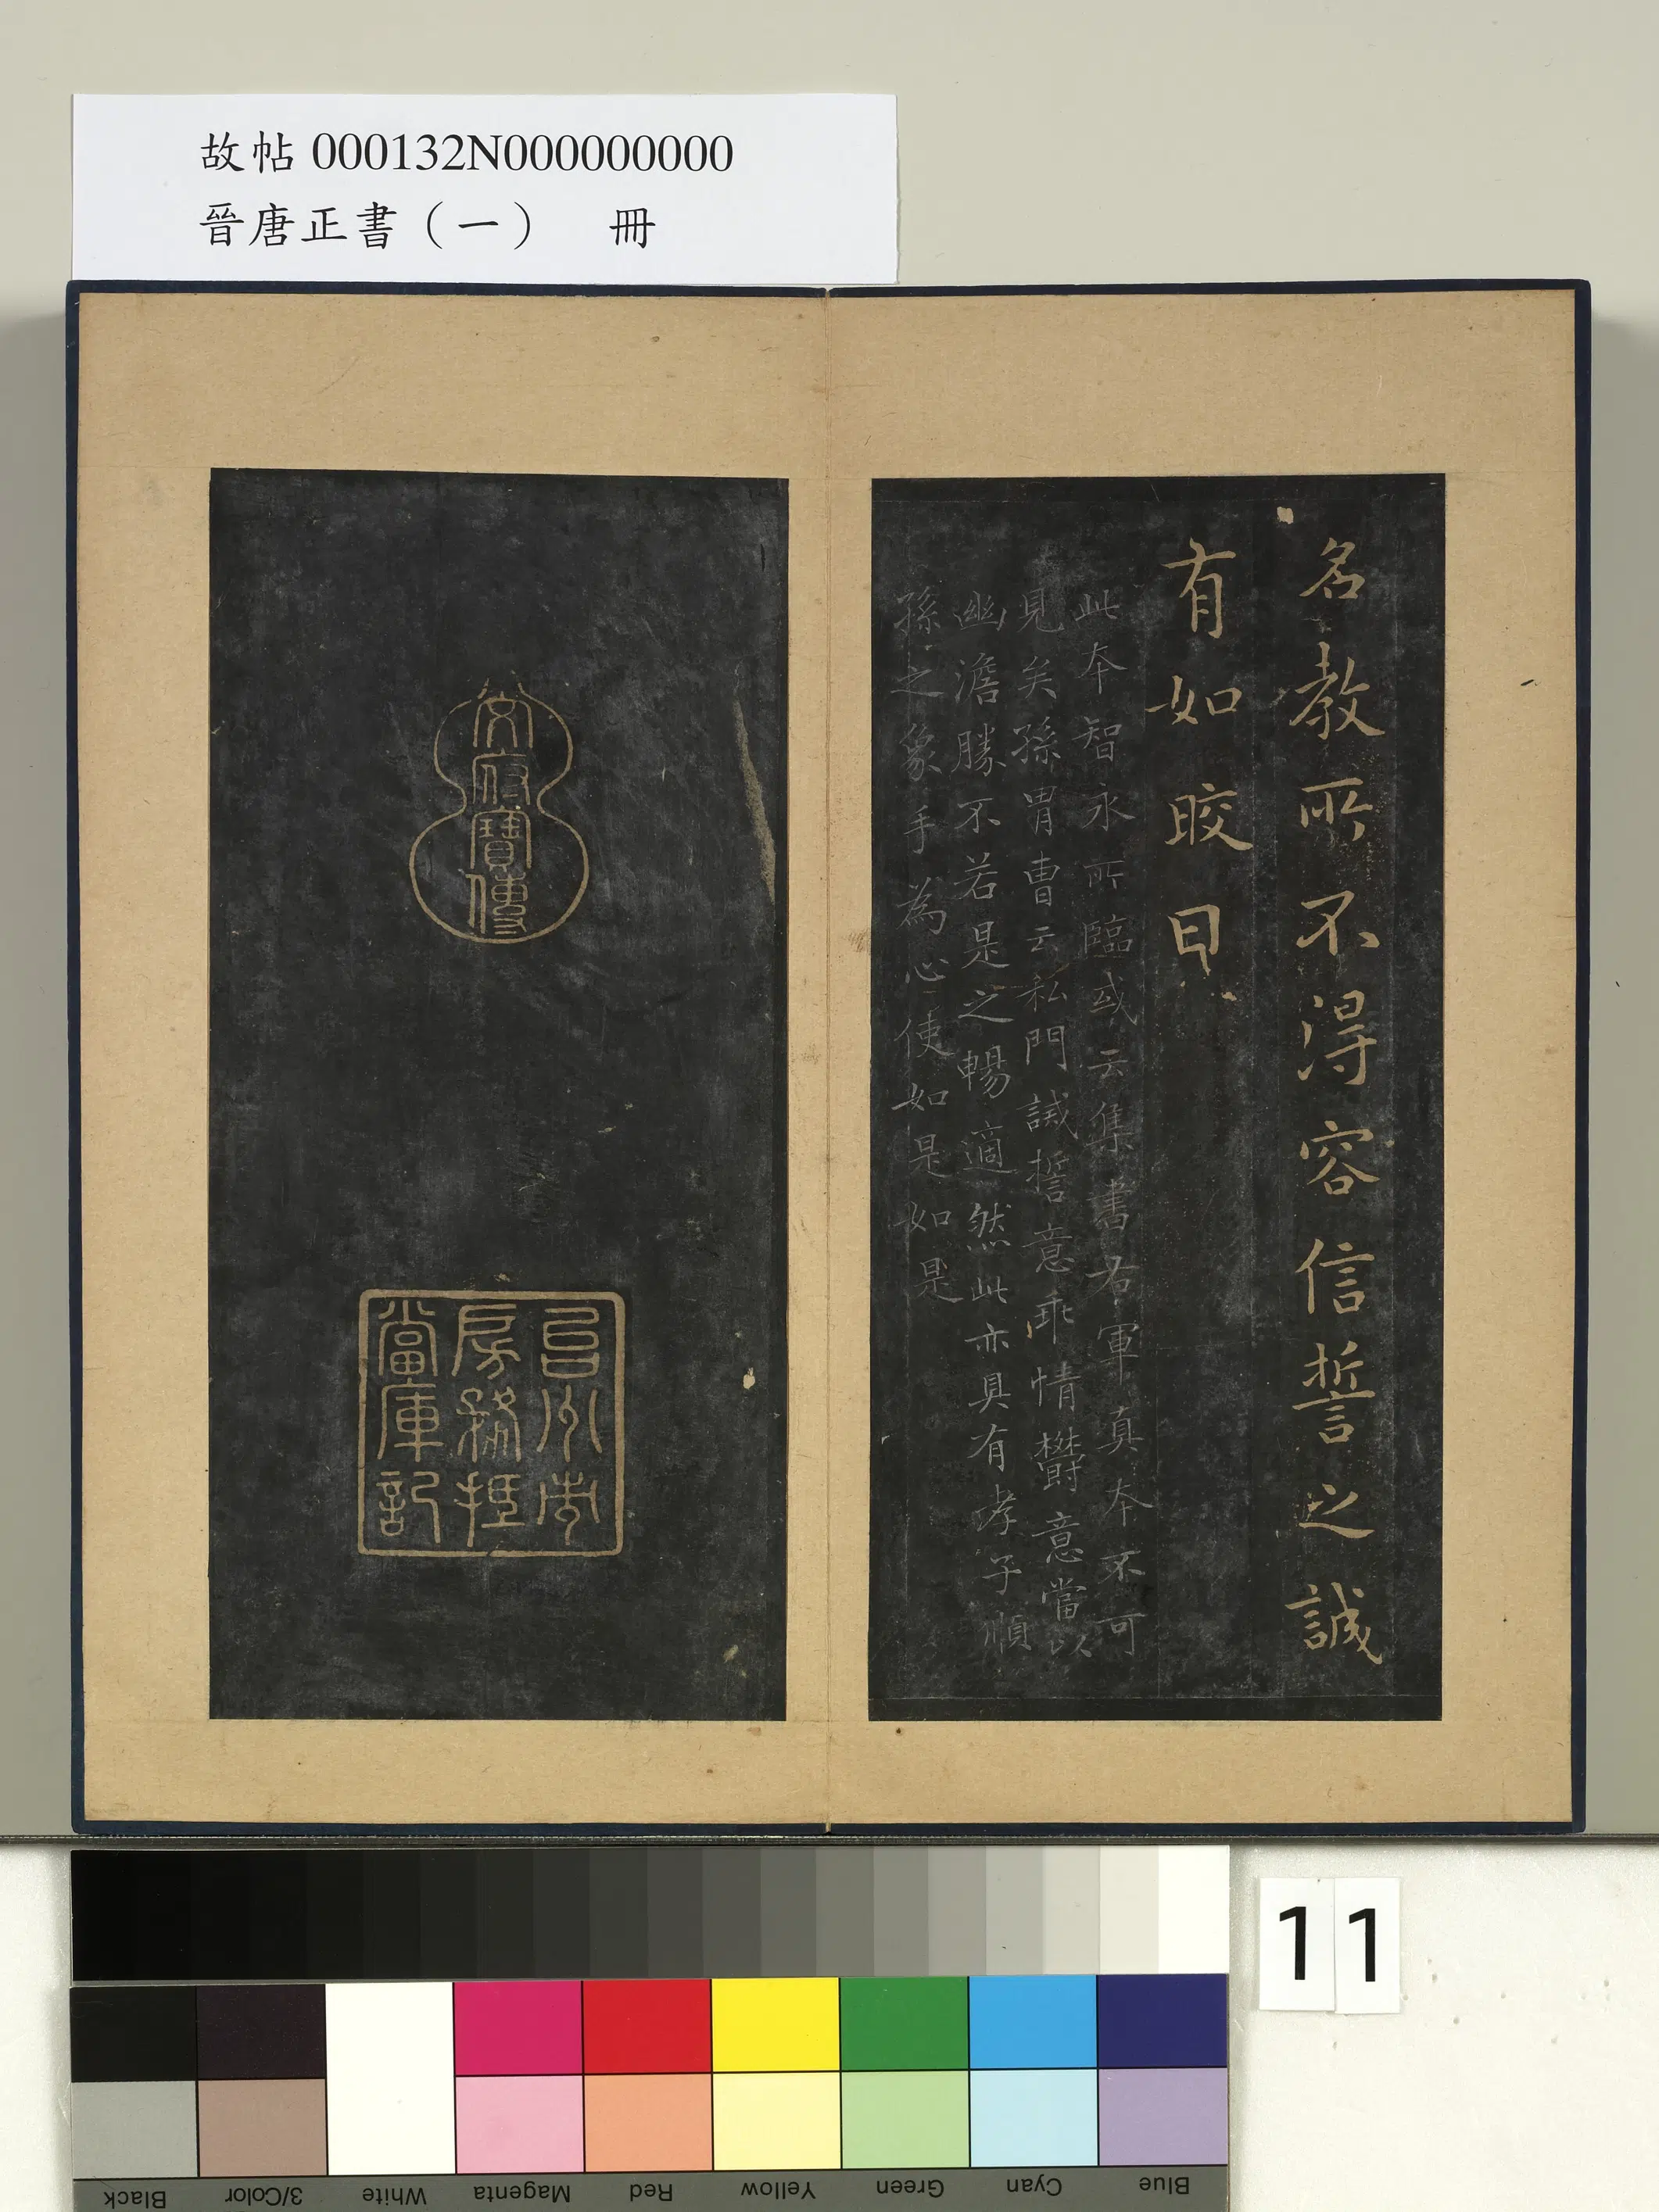 故帖 000132N000000000
晉唐正書（一） 冊
名教所不得容信誓之誠
有如皎日
此本智永所臨或云集書右軍真本不可
見矣孫胄曹云私門誡誓意乖情欝意當以
幽澹勝不若是之暢適然此亦具有孝子順
孫之象手為心使如是如是
府寶傳
房務
當庫記
11
Black
3/Color
White
Magenta
Red
Yellow
Green
Cyan
Blue